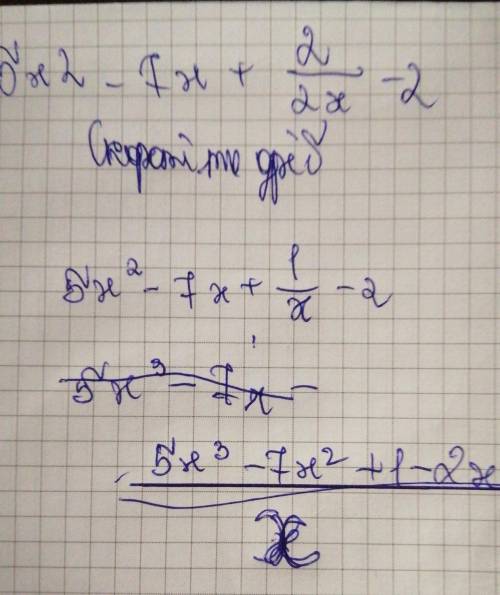 5x2 - 7x + 2/2x - 2
Скоротіть дріб
5x² - 7x + 1/x - 2
5x³ - 7x -
5x³ - 7x² + 1 - 2x
x